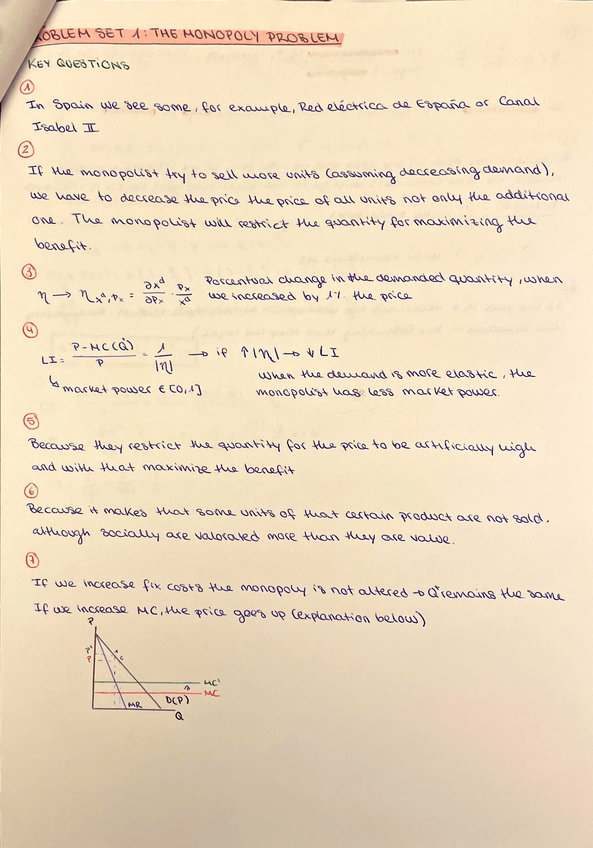 OBLEM SET 1: THE MONOPOLY PROBLEM
KEY QUESTIONS
1
In Spain we see some, for example, Red eléctrica de España or Canal
Isabel II
2
If the monopolist try to sell more units (assuming decreasing demand),
we have to decrease the price the price of all units not only the additional
one. The monopolist will restrict the quantity for maximizing the
benefit.
3
η → η x^d, Px = ∂x^d/∂Px · Px/x^d Porcentual change in the demanded quantity, when
we increased by 1% the price
4
LI = P - MC(Q)/P = 1/|η| → if ↑|η| → ↓ LI
When the demand is more elastic, the
↳ market power ∈ [0,1] monopolist has less market power.
5
Because they restrict the quantity for the price to be artificially high
and with that maximize the benefit
6
Because it makes that some units of that certain product are not sold.
although socially are valorated more than they are value.
7
If we increase fix costs the monopoly is not altered → Q* remains the same
If we increase MC, the price goes up (explanation below)
P
P'
P
MC'
MC
D(P)
MR
Q